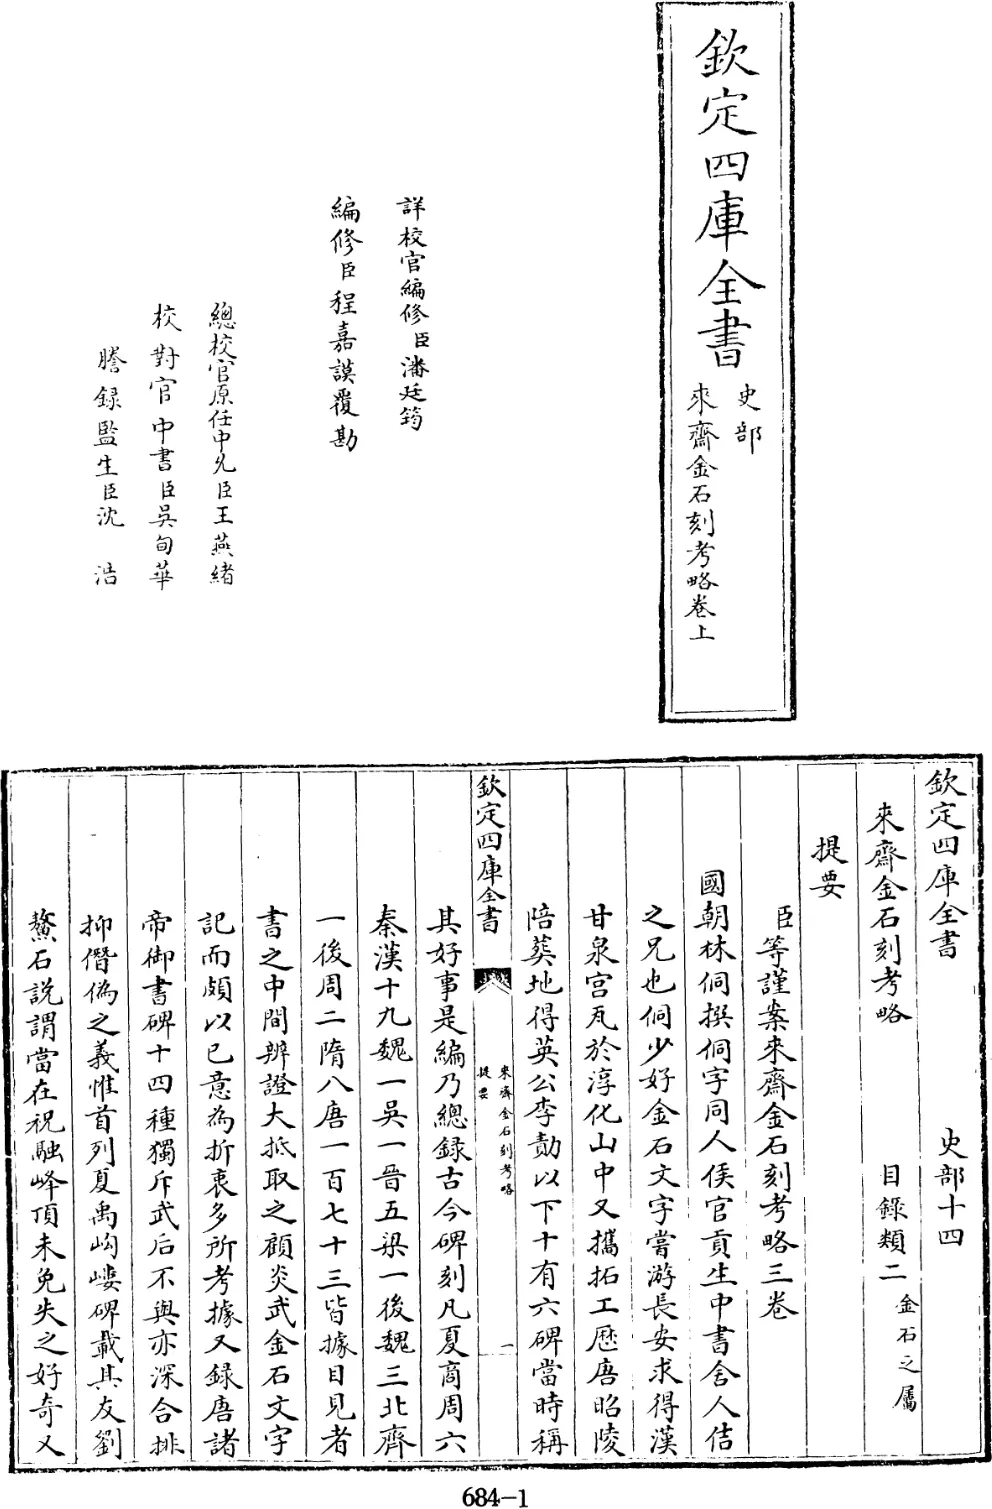 欽定四庫全書
史部
來齋金石刻考略卷上
詳校官編修臣潘廷筠
編修臣程嘉謨覆勘
總校官原任中允臣王燕緒
校對官中書臣吳甸華
謄録監生臣沈浩
欽定四庫全書 史部十四
來齋金石刻考略 目録類二金石之屬
提要
臣等謹案來齋金石刻考略三卷
國朝林侗撰侗字同人侯官貢生中書舍人佶
之兄也侗少好金石文字嘗游長安求得漢
甘泉宫瓦於淳化山中又攜拓工歴唐昭陵
陪葬地得英公李勣以下十有六碑當時稱
欽定四庫全書
來齋金石刻考略
提要
一
其好事是編乃總録古今碑刻凡夏商周六
秦漢十九魏一吳一晉五梁一後魏三北齊
一後周二隋八唐一百七十三皆據目見者
書之中間辨證大抵取之顧炎武金石文字
記而頗以已意為折衷多所考據又録唐諸
帝御書碑十四種獨斥武后不與亦深合排
抑僭偽之義惟首列夏禹岣嶁碑載其友劉
鰲石説謂當在祝融峰頂未免失之好奇又
684-1